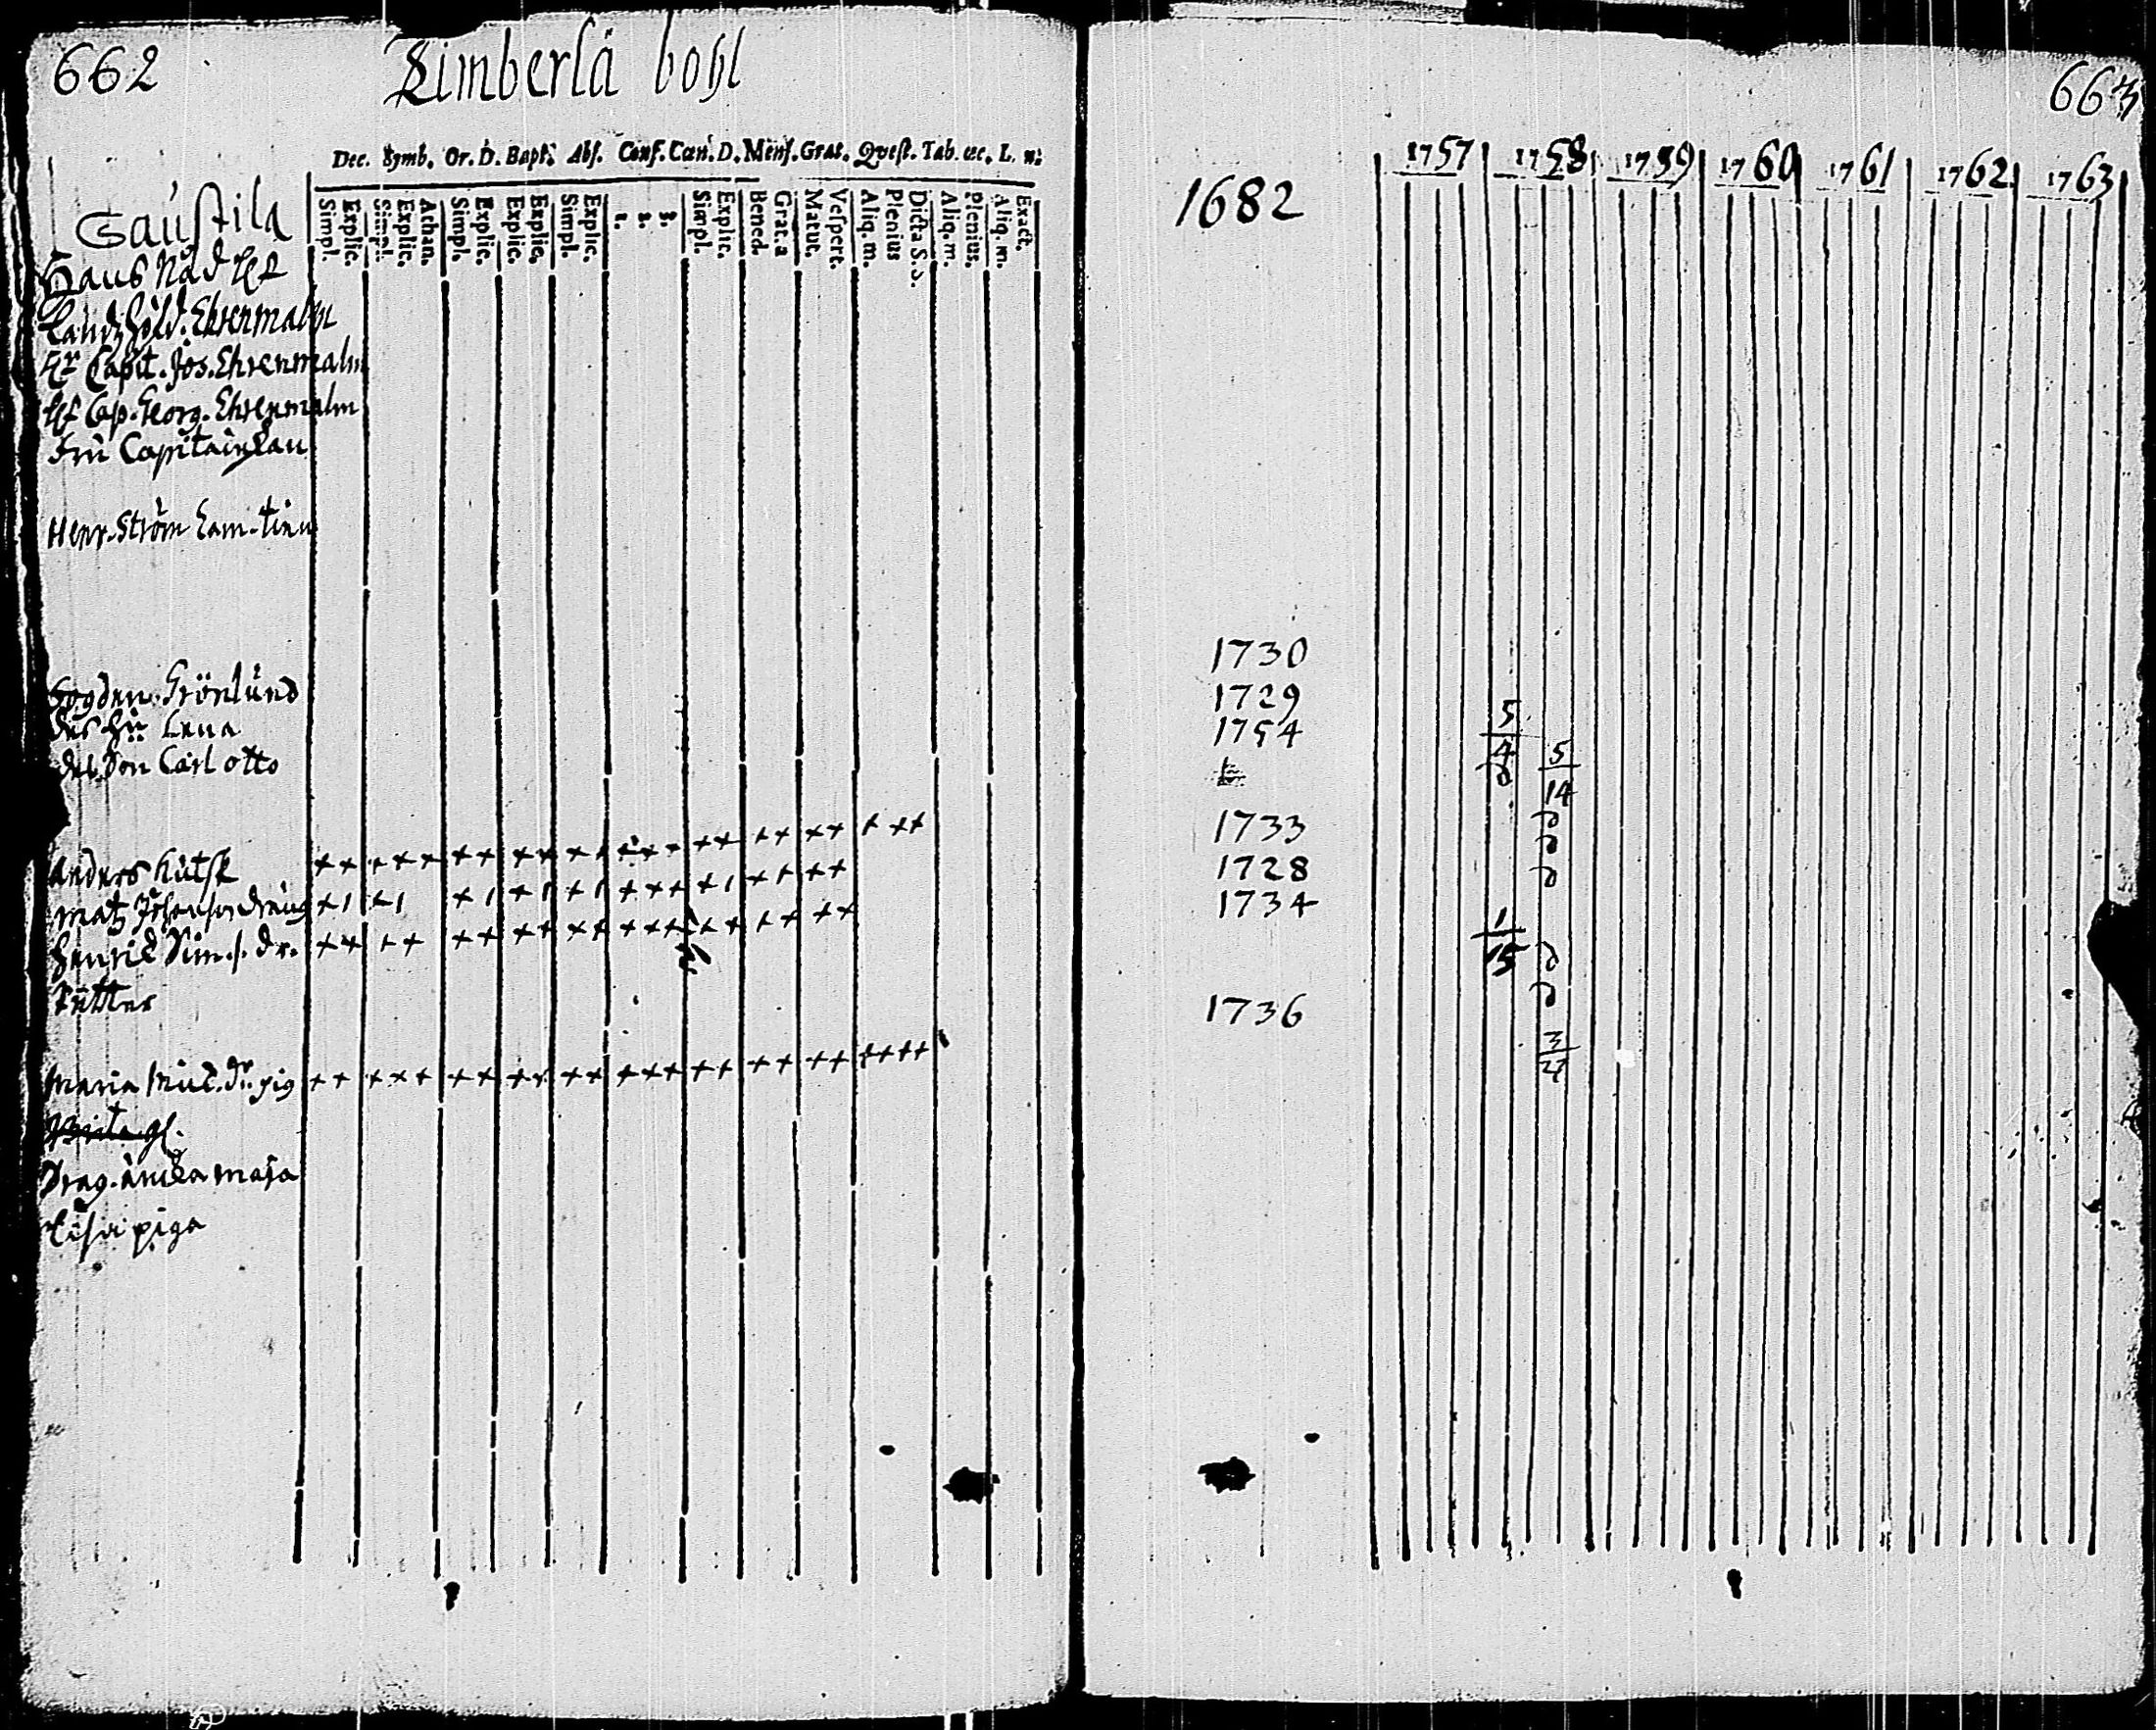 662
Kimberla bohl
Dec. Symb. Or. D. Bapt. Abs. Conf. Cœn. D. Mens. Grat. Qvest. Tab. œc. L. n.
Simpl. Explic. Simpl. Explic. Athan. Simpl. Explic. Explic. Explic. Simpl. Explic. 1. 2. 3. Simpl. Explic. Bened. Grat. a Matut. Vespert. Aliq. m. Plenius Dicta S. S. Aliq. m. Plenius. Aliq. m. Exact.
Gaustila
Hans Nåd
Landzhöfd. Ehrenmalm
Hr Capit. Jos. Ehrenmalm
Hr Cap. Georg. Ehrenmalm
Fru Capitain
Henr. Ström
Grönlund
des hu Lena
des Son Carl otto
Anders Kutsk
matz Johansson dräng
Henric Sim. s. dr.
Rutter
Maria Mic. dr pig
Brita
Drag. ancka maja
Lisa piga
663
1757 1758 1759 1760 1761 1762 1763
1682
1730
1729
1754
1733
1728
1734
1736
5
4
5
14
1
15
3
4